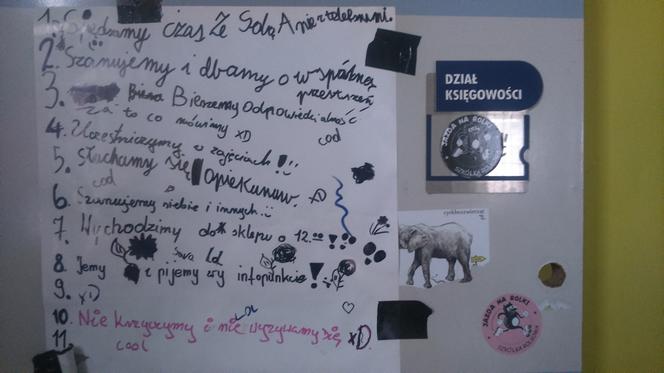 1. Spędzamy czas ze sobą A nie z telefonami.
2. Szanujemy i dbamy o wspólną
przestrzeń
3. Bierzemy odpowiedzialność
za to co mówimy xD
cod
4. Uczestniczymy w zajęciach!
5. słuchamy się opiekunuw. xD
cod
6. Szanujemy siebie i innych
7. Wychodzimy do sklepu o 12.00
8. Jemy i pijemy wy infopunkcie!
9. xD
10. Nie krzyczymy i nie wyzywamy się xD.
11. cool
DZIAŁ
KSIĘGOWOŚCI
JAZDA NA ROLKI
SZKÓŁKA
JAZDA NA ROLKI
SZKÓŁKA ROLKOWA